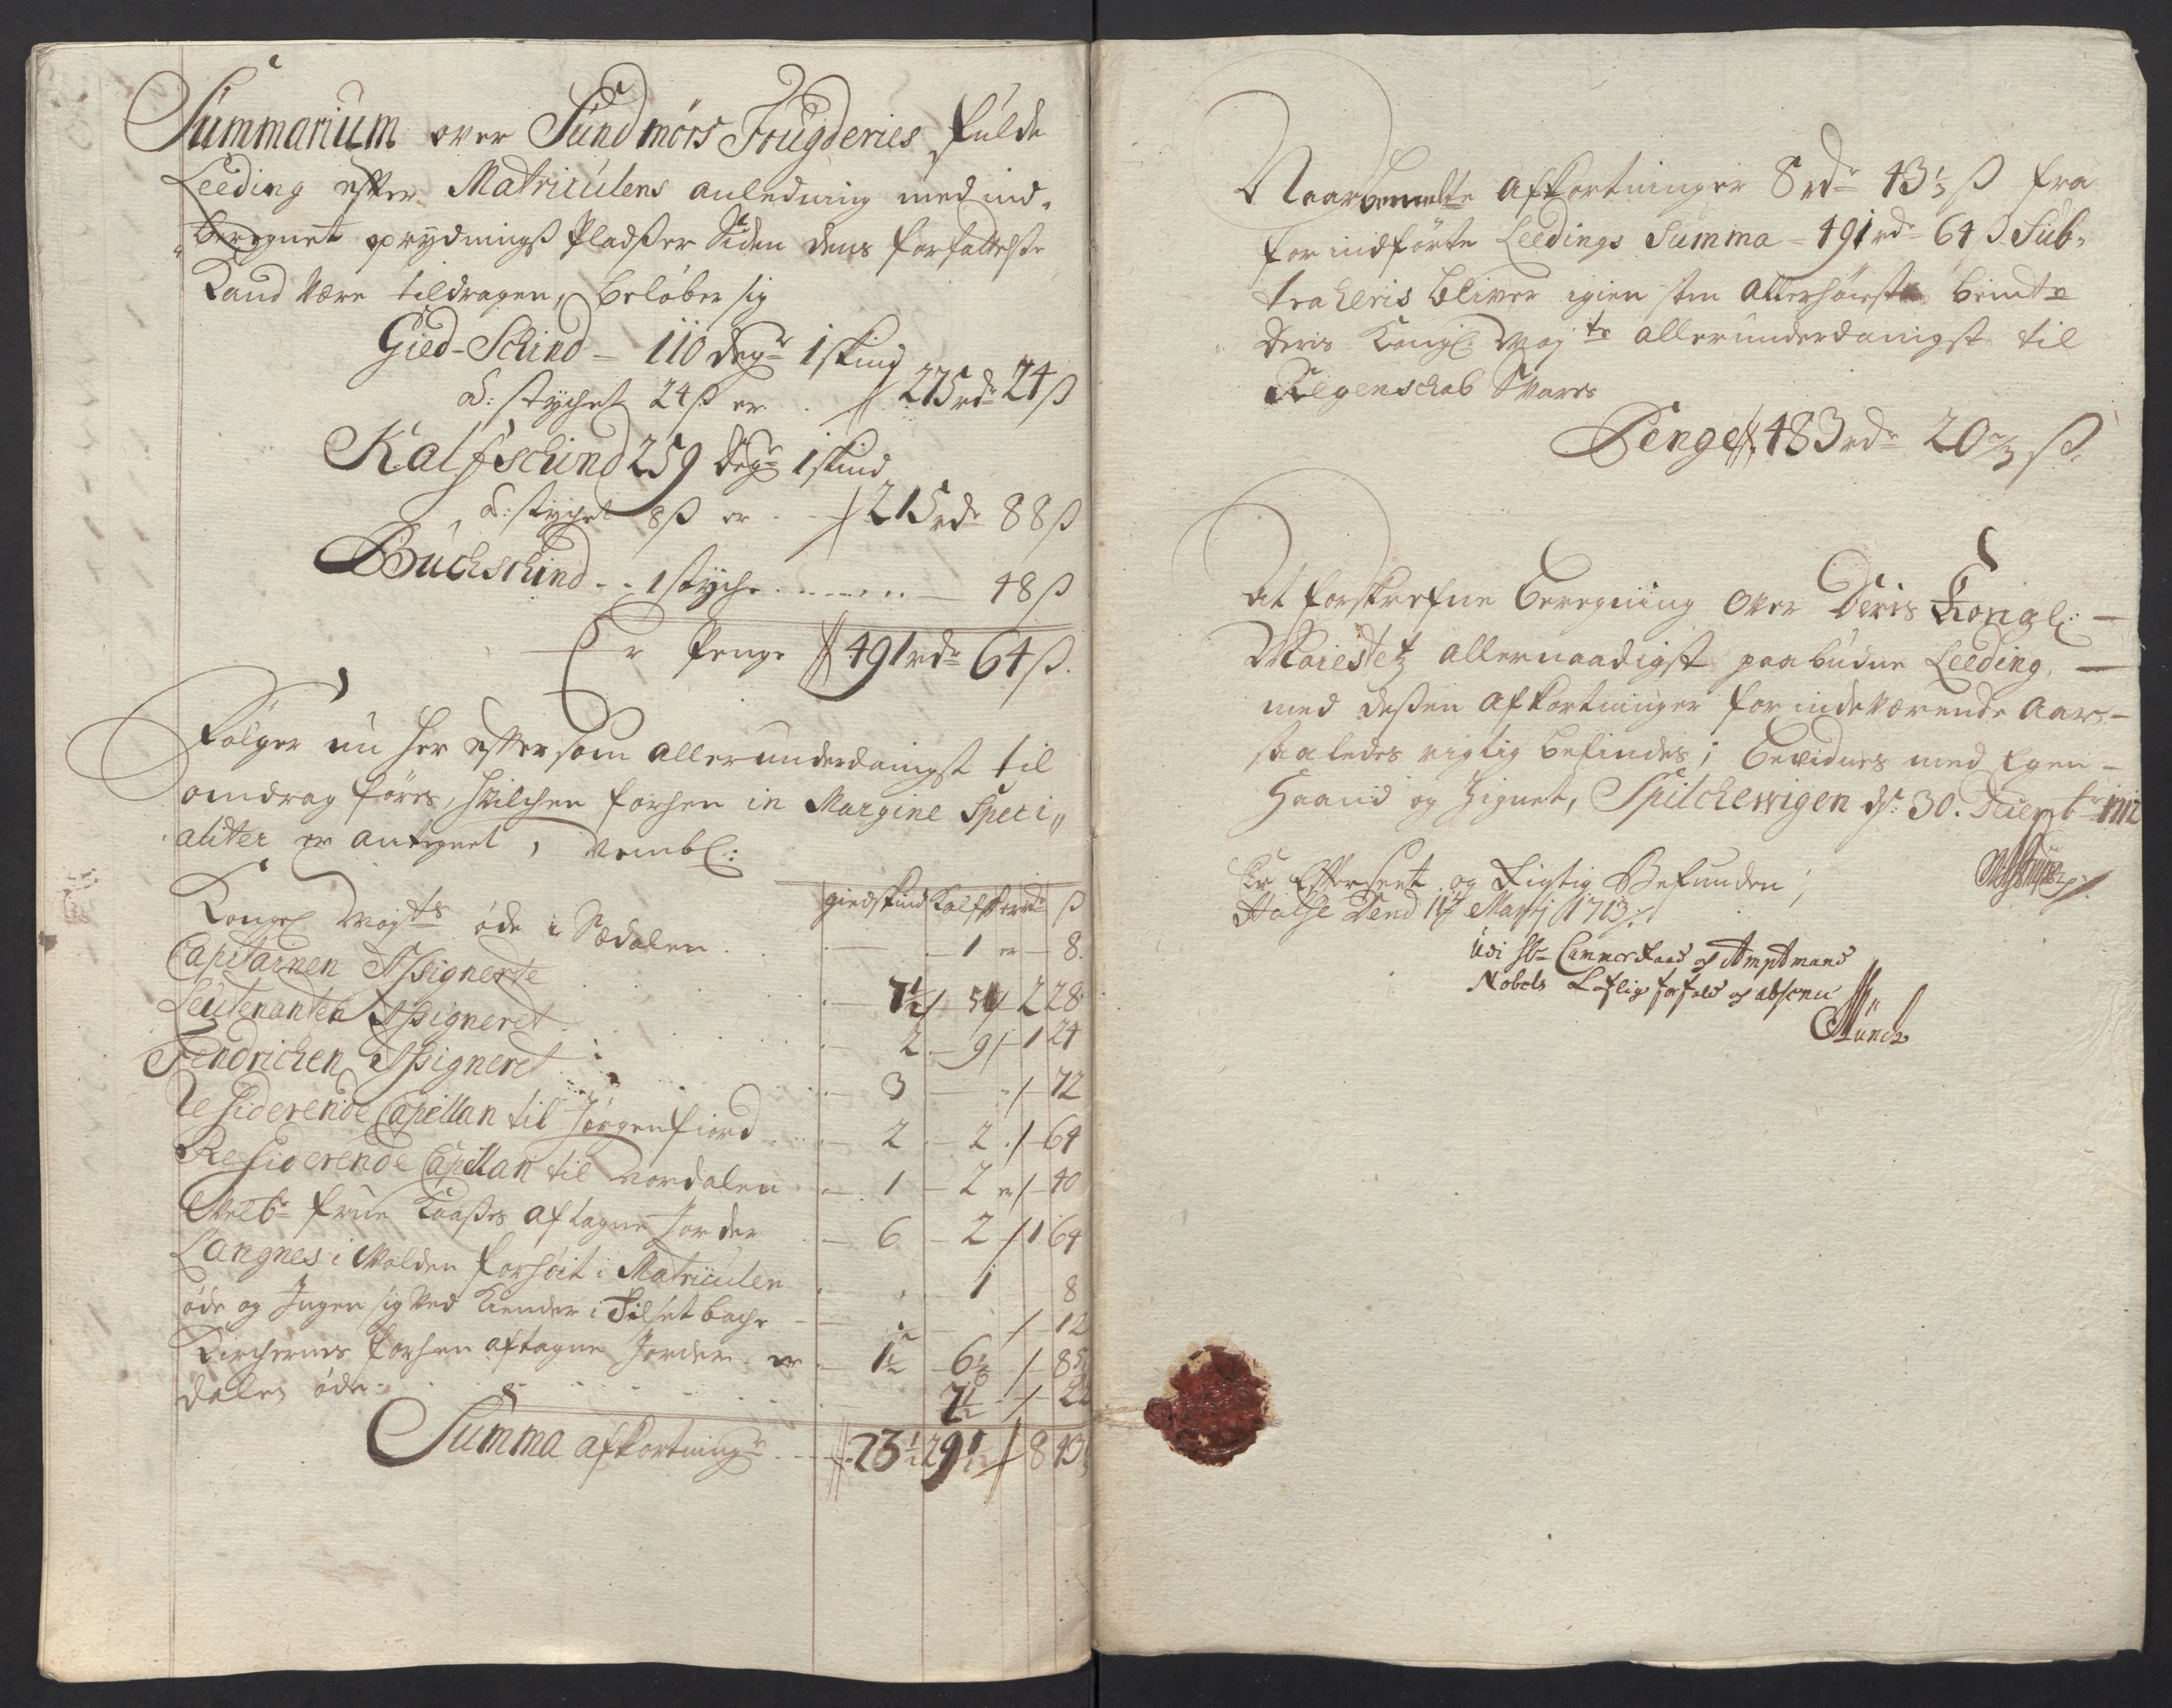 Summarium over Sundmørs Fougderies fulde
Leeding efter Matriculens anledning med ind-
beregnet oprydnings Pladßer Siden dens forfattelse
Kand være tildragen, beløber sig
Gied-Schind - 110 degr 1 skind
â: stychet 24 ß er . . // 275 rdr 24 ß
Kalfschind 259 degr 1 skind
â: stychet 8 ß er . . - / 215 rdr 88 ß
Buchschind - - 1 styche . . . . . . . . — 48 ß
Er Penge // 491 rdr 64 ß.
Følger nu her efter som allerunderdanigst til
omdrag føres, hvilchen forhen in Margine Speci„
aliter er antegnet, Nembl:
giedskind Kalfsk rdr ß
Kongl Mayts øde i Sædalen . — — 1 er — 8.
Capitainen Aßigneret . . . — 7½ / 5 / 2 28
Leutenanten Aßigneret . . . — 2 — 9 / 1 24
Fendrichen Aßigneret . . . — 3 — - / — 72
Residerende Capellan til Jørgenfiord . . — 2 — 2 . / — 64
Residerende Capellan til Nordalen — 1 — 2 er / — 40
Velbr frue Kaaßes aftagne Jorder — 6 — 2 / 1 64
Langnes i Volden forhøit i Matriculen . . 1 8
øde og Ingen sig ved Kiender i Tilset bache — — / — 12
Kirchernes forhen aftagne Jorder er — 1½ — 6½ / — 85
dalen øde . . . . . . 7½ - / —
Summa afkortningr . . . // 23½ 29½ / 8 43⅓
Naar bemelte afkortninger 8 rdr 43⅓ ß fra
for indførte Leedings Summa - 491 rdr 64 ß Sub-
traheris bliver igien som Allerhøist bemte
Deris Kongl: Mayts allerunderdanigst til
Regenschab Svares
Penge // 483 rdr 20⅔ ß.
At forskrefne beregning over Deris Kongl: —
Maiestetz allernaadigst paabudne Leeding, —
med deßen afkortninger for indeværende aar —
saaledes rigtig befindes; bevidnes med Egen —
Haand og Zignet, Spilchewigen dr: 30. Decembr 1712
Er Efterseet og Rigtig Befunden;
Halse Dend 11t Martij 1713
Udi Hr Cammer Raad og Amptmand
Nobels Loflig forfald og absence
Münch